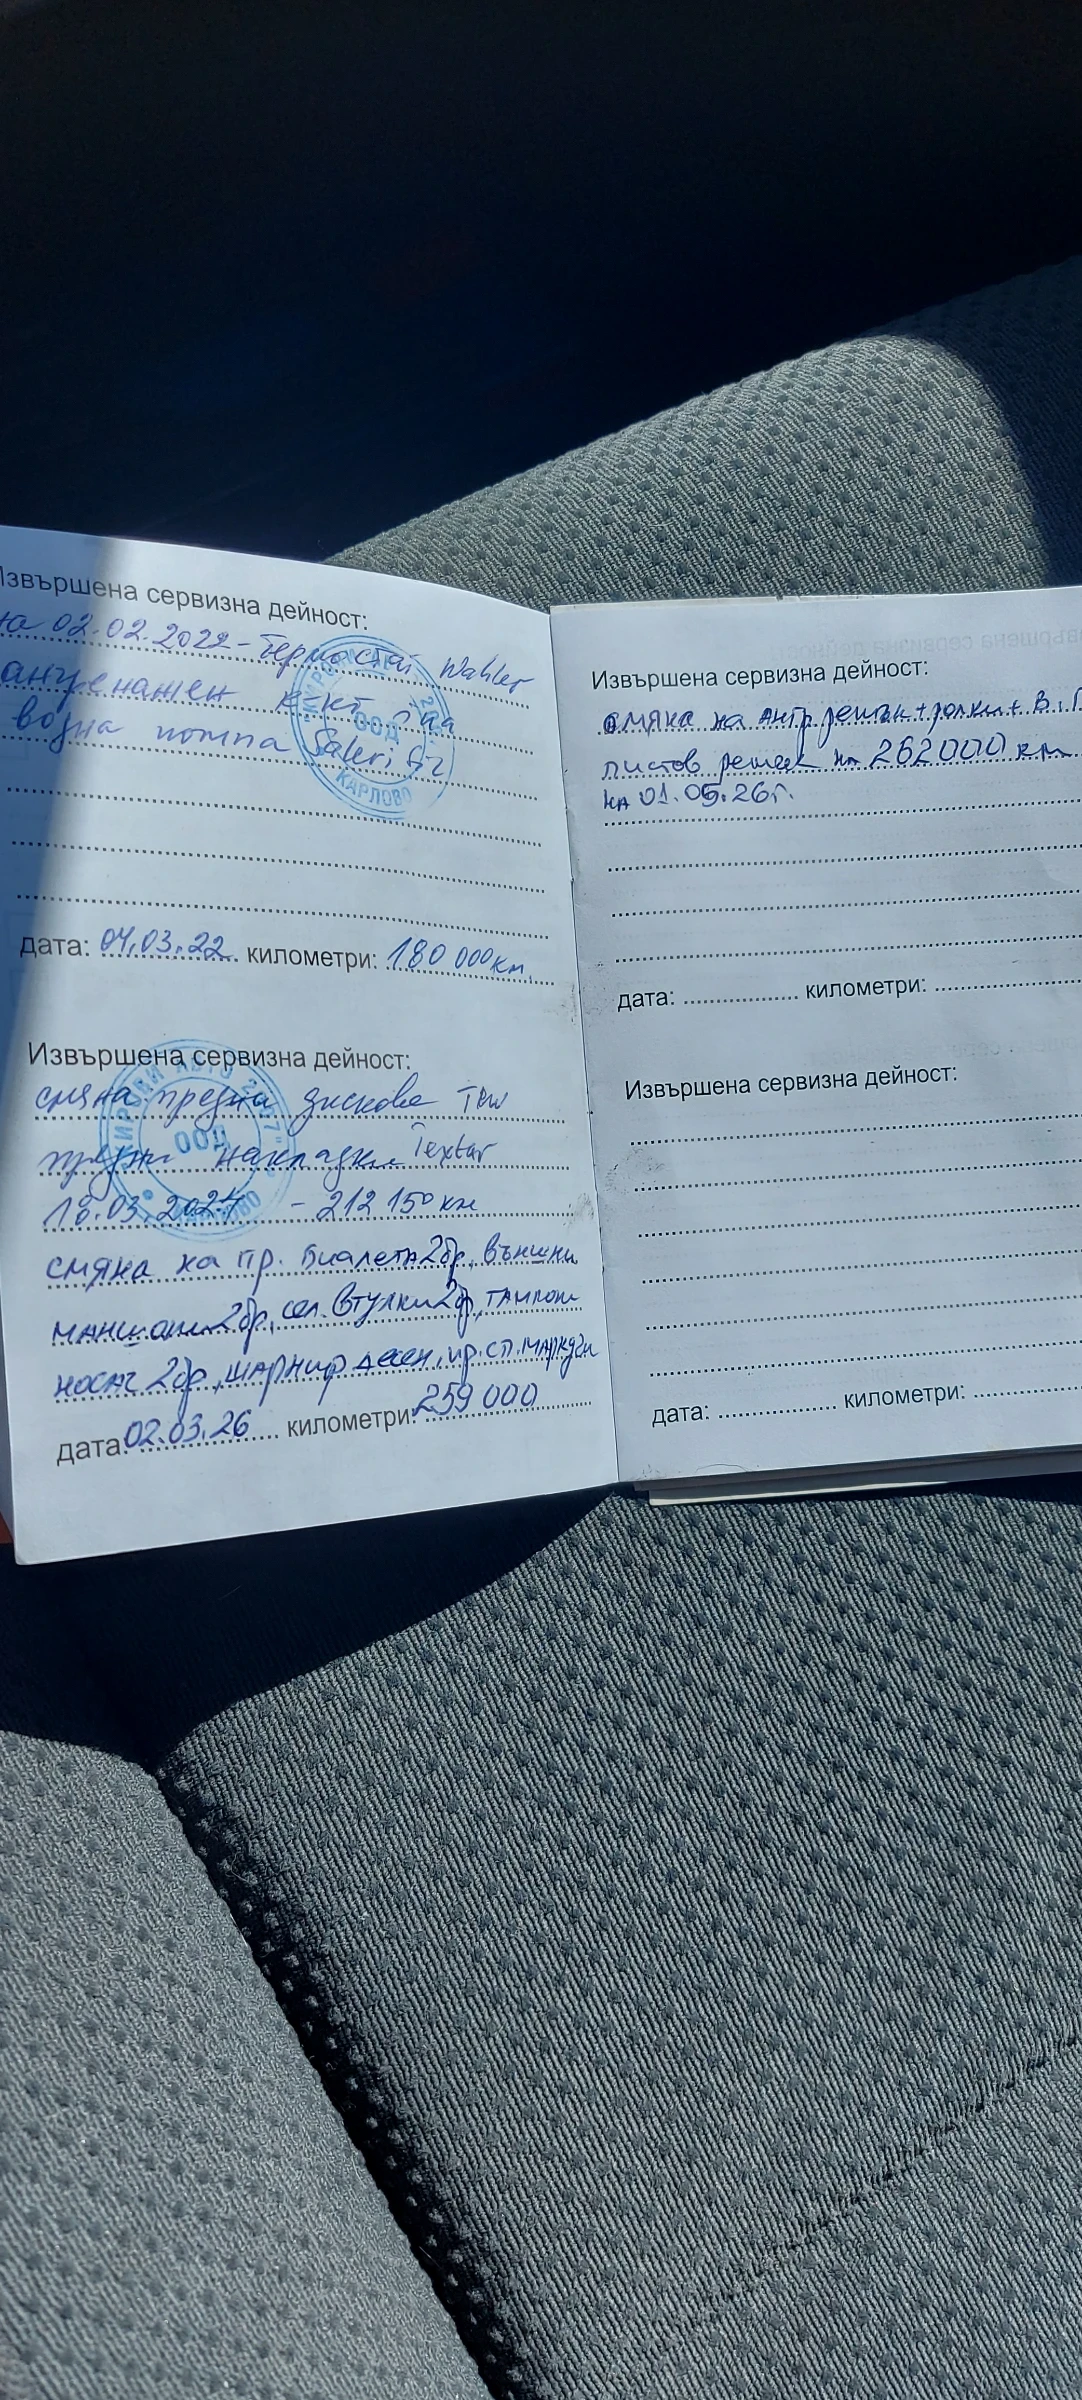 Извършена сервизна дейност:
на 02.02.2022 - Термостат Wahler
ангренажен к-кт
водна помпа Saleri
ООД
КАРЛОВО
дата: 04.03.22 километри: 180 000 км.
Извършена сервизна дейност:
смяна предни дискове TRW
предни накладки Textar
18.03.2024 - 212 150 км
смяна на пр. Биалета 2бр., външни
маншони 2бр, сел. втулки 2бр, тампон
носач 2бр, шарнир десен, пр. сп. маркучи
дата: 02.03.26 километри: 259 000
ООД
Извършена сервизна дейност:
смяна на Ангр. ремък + ролки + В.П
пистов ремък на 262000 км
на 01.05.26г.
дата: километри:
Извършена сервизна дейност:
дата: километри: